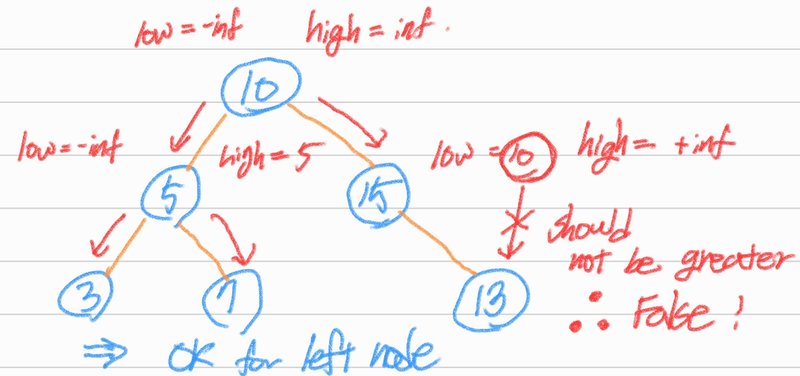 low = -inf high = inf.
10
low = -inf high = 5 low = 10 high = +inf
5 15
should
not be greater
3 7 13
∴ False!
⇒ OK for left node